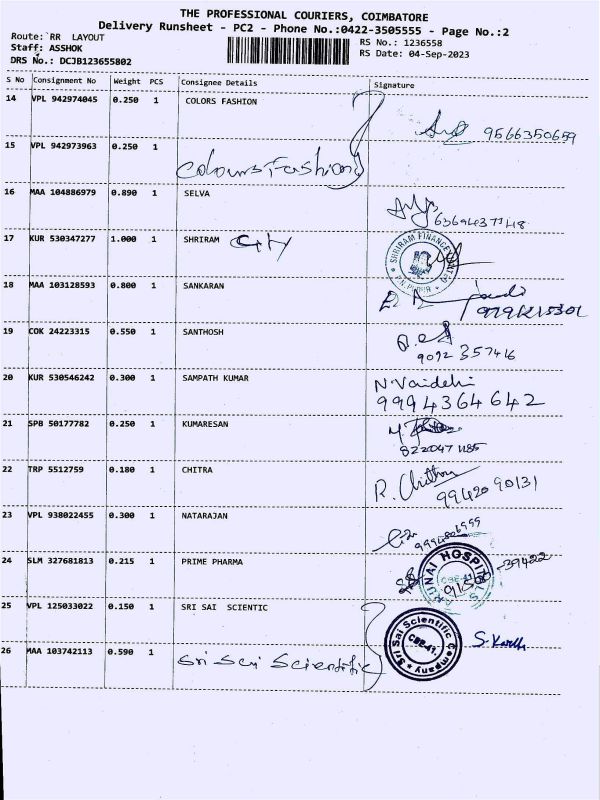 THE PROFESSIONAL COURIERS, COIMBATORE
Delivery Runsheet - PC2 - Phone No.:0422-3505555 - Page No.:2
Route: RR LAYOUT RS No.: 1236558
Staff: ASSHOK RS Date: 04-Sep-2023
DRS No.: DCJB123655802
S No Consignment No Weight PCS Consignee Details Signature
14 VPL 942974045 0.250 1 COLORS FASHION 9566350659
15 VPL 942973963 0.250 1 Colours Fashion
16 MAA 104886979 0.890 1 SELVA 6369437748
17 KUR 530347277 1.000 1 SHRIRAM City SHRIRAM FINANCE LIMITED
18 MAA 103128593 0.800 1 SANKARAN
19 COK 24223315 0.550 1 SANTHOSH 9092 357416
20 KUR 530546242 0.300 1 SAMPATH KUMAR N. Vaidehi
9994364642
21 SPB 50177782 0.250 1 KUMARESAN
8220471185
22 TRP 5512759 0.180 1 CHITRA R. Chithra
99420 90131
23 VPL 938022455 0.300 1 NATARAJAN 9994806999
24 SLM 327681813 0.215 1 PRIME PHARMA ARUNAI HOSPITALS CBE-41
25 VPL 125033022 0.150 1 SRI SAI SCIENTIC Sri Sai Scientific Company CBE-41.
26 MAA 103742113 0.590 1 Sri Sai Scientific